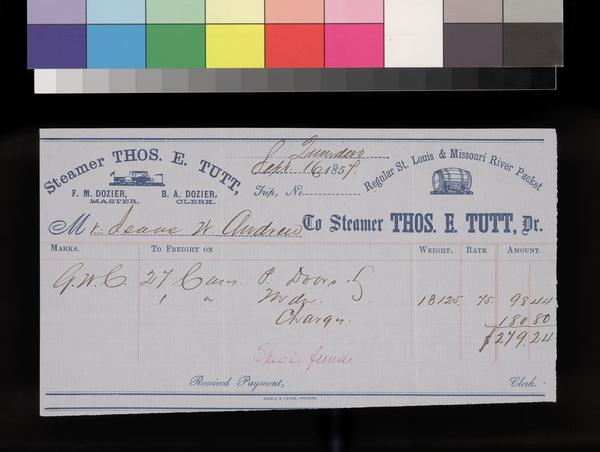 Steamer THOS. E. TUTT,
F. M. DOZIER, MASTER.
B. A. DOZIER, CLERK.
Sept. 16, 1857.
Trip, No.
Regular St. Louis & Missouri River Packet
Mr. Isaac W. Andrew To Steamer THOS. E. TUTT, Dr.
MARKS. TO FREIGHT ON WEIGHT. RATE AMOUNT.
27 Doors
1 " Mdz. 13125. 75. 98 44
Charges. 180 80
$279.24
Specie funds
Received Payment, Clerk.